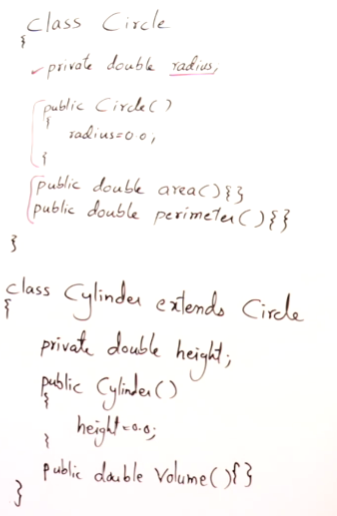 class Circle
{
private double radius;
public Circle()
{
radius=0.0;
}
public double area(){}
public double perimeter(){}
}
class Cylinder extends Circle
{
private double height;
public Cylinder()
{
height=0.0;
}
public double Volume(){}
}